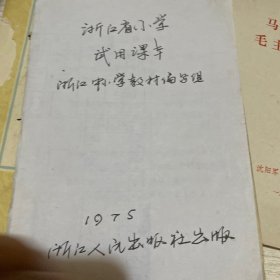 浙江省小学
试用课本
浙江中小学教材编写组
1975
浙江人民出版社出版
马
毛主
沈阳军